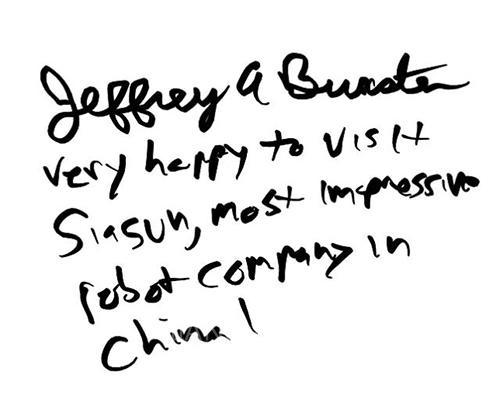 Jeffrey A Burnstein
very happy to visit
Siasun, most impressive
robot company in
China!